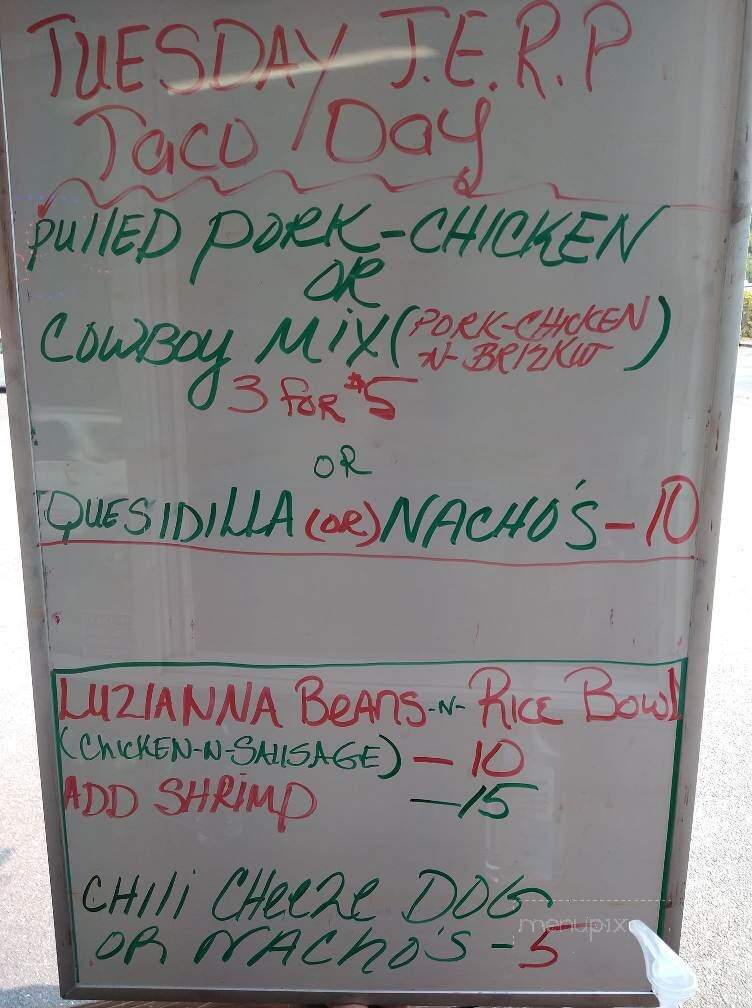 TUESDAY J.E.R.P
Taco Day
PULLED PORK-CHICKEN
OR
COWBOY MIX (PORK-CHICKEN
-N- BRIZKIT)
3 FOR $5
OR
QUESIDILLA (OR) NACHO'S - 10
LUZIANNA BEANS -N- RICE BOWL
(CHICKEN-N-SAUSAGE) - 10
ADD SHRIMP - 15
CHILI CHEEZE DOG
OR NACHO'S - 5
menupix